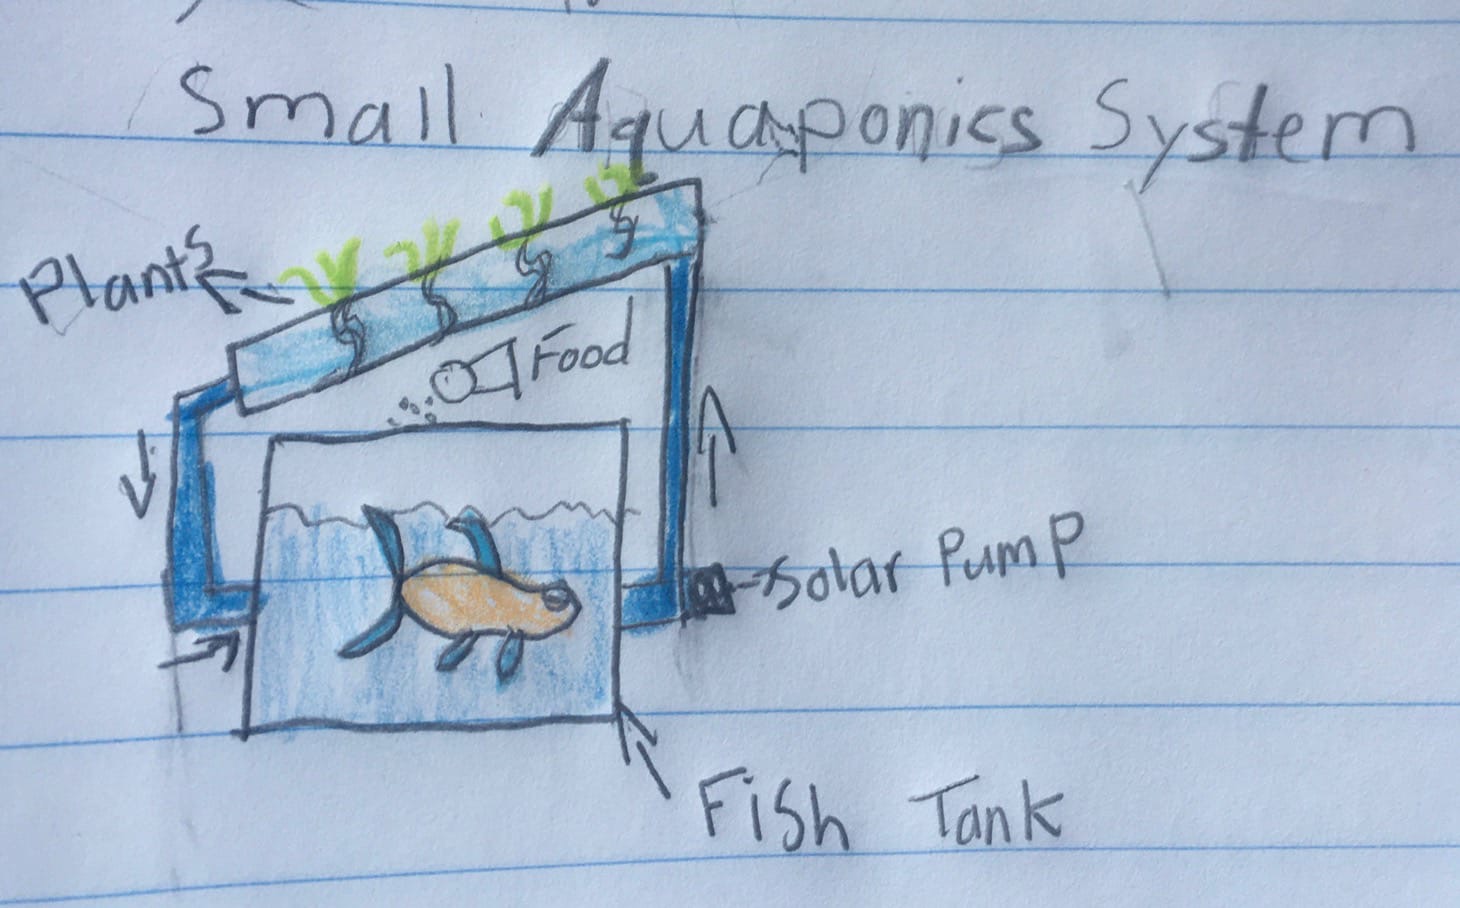 Small Aquaponics System
Plants
Food
Solar Pump
Fish Tank